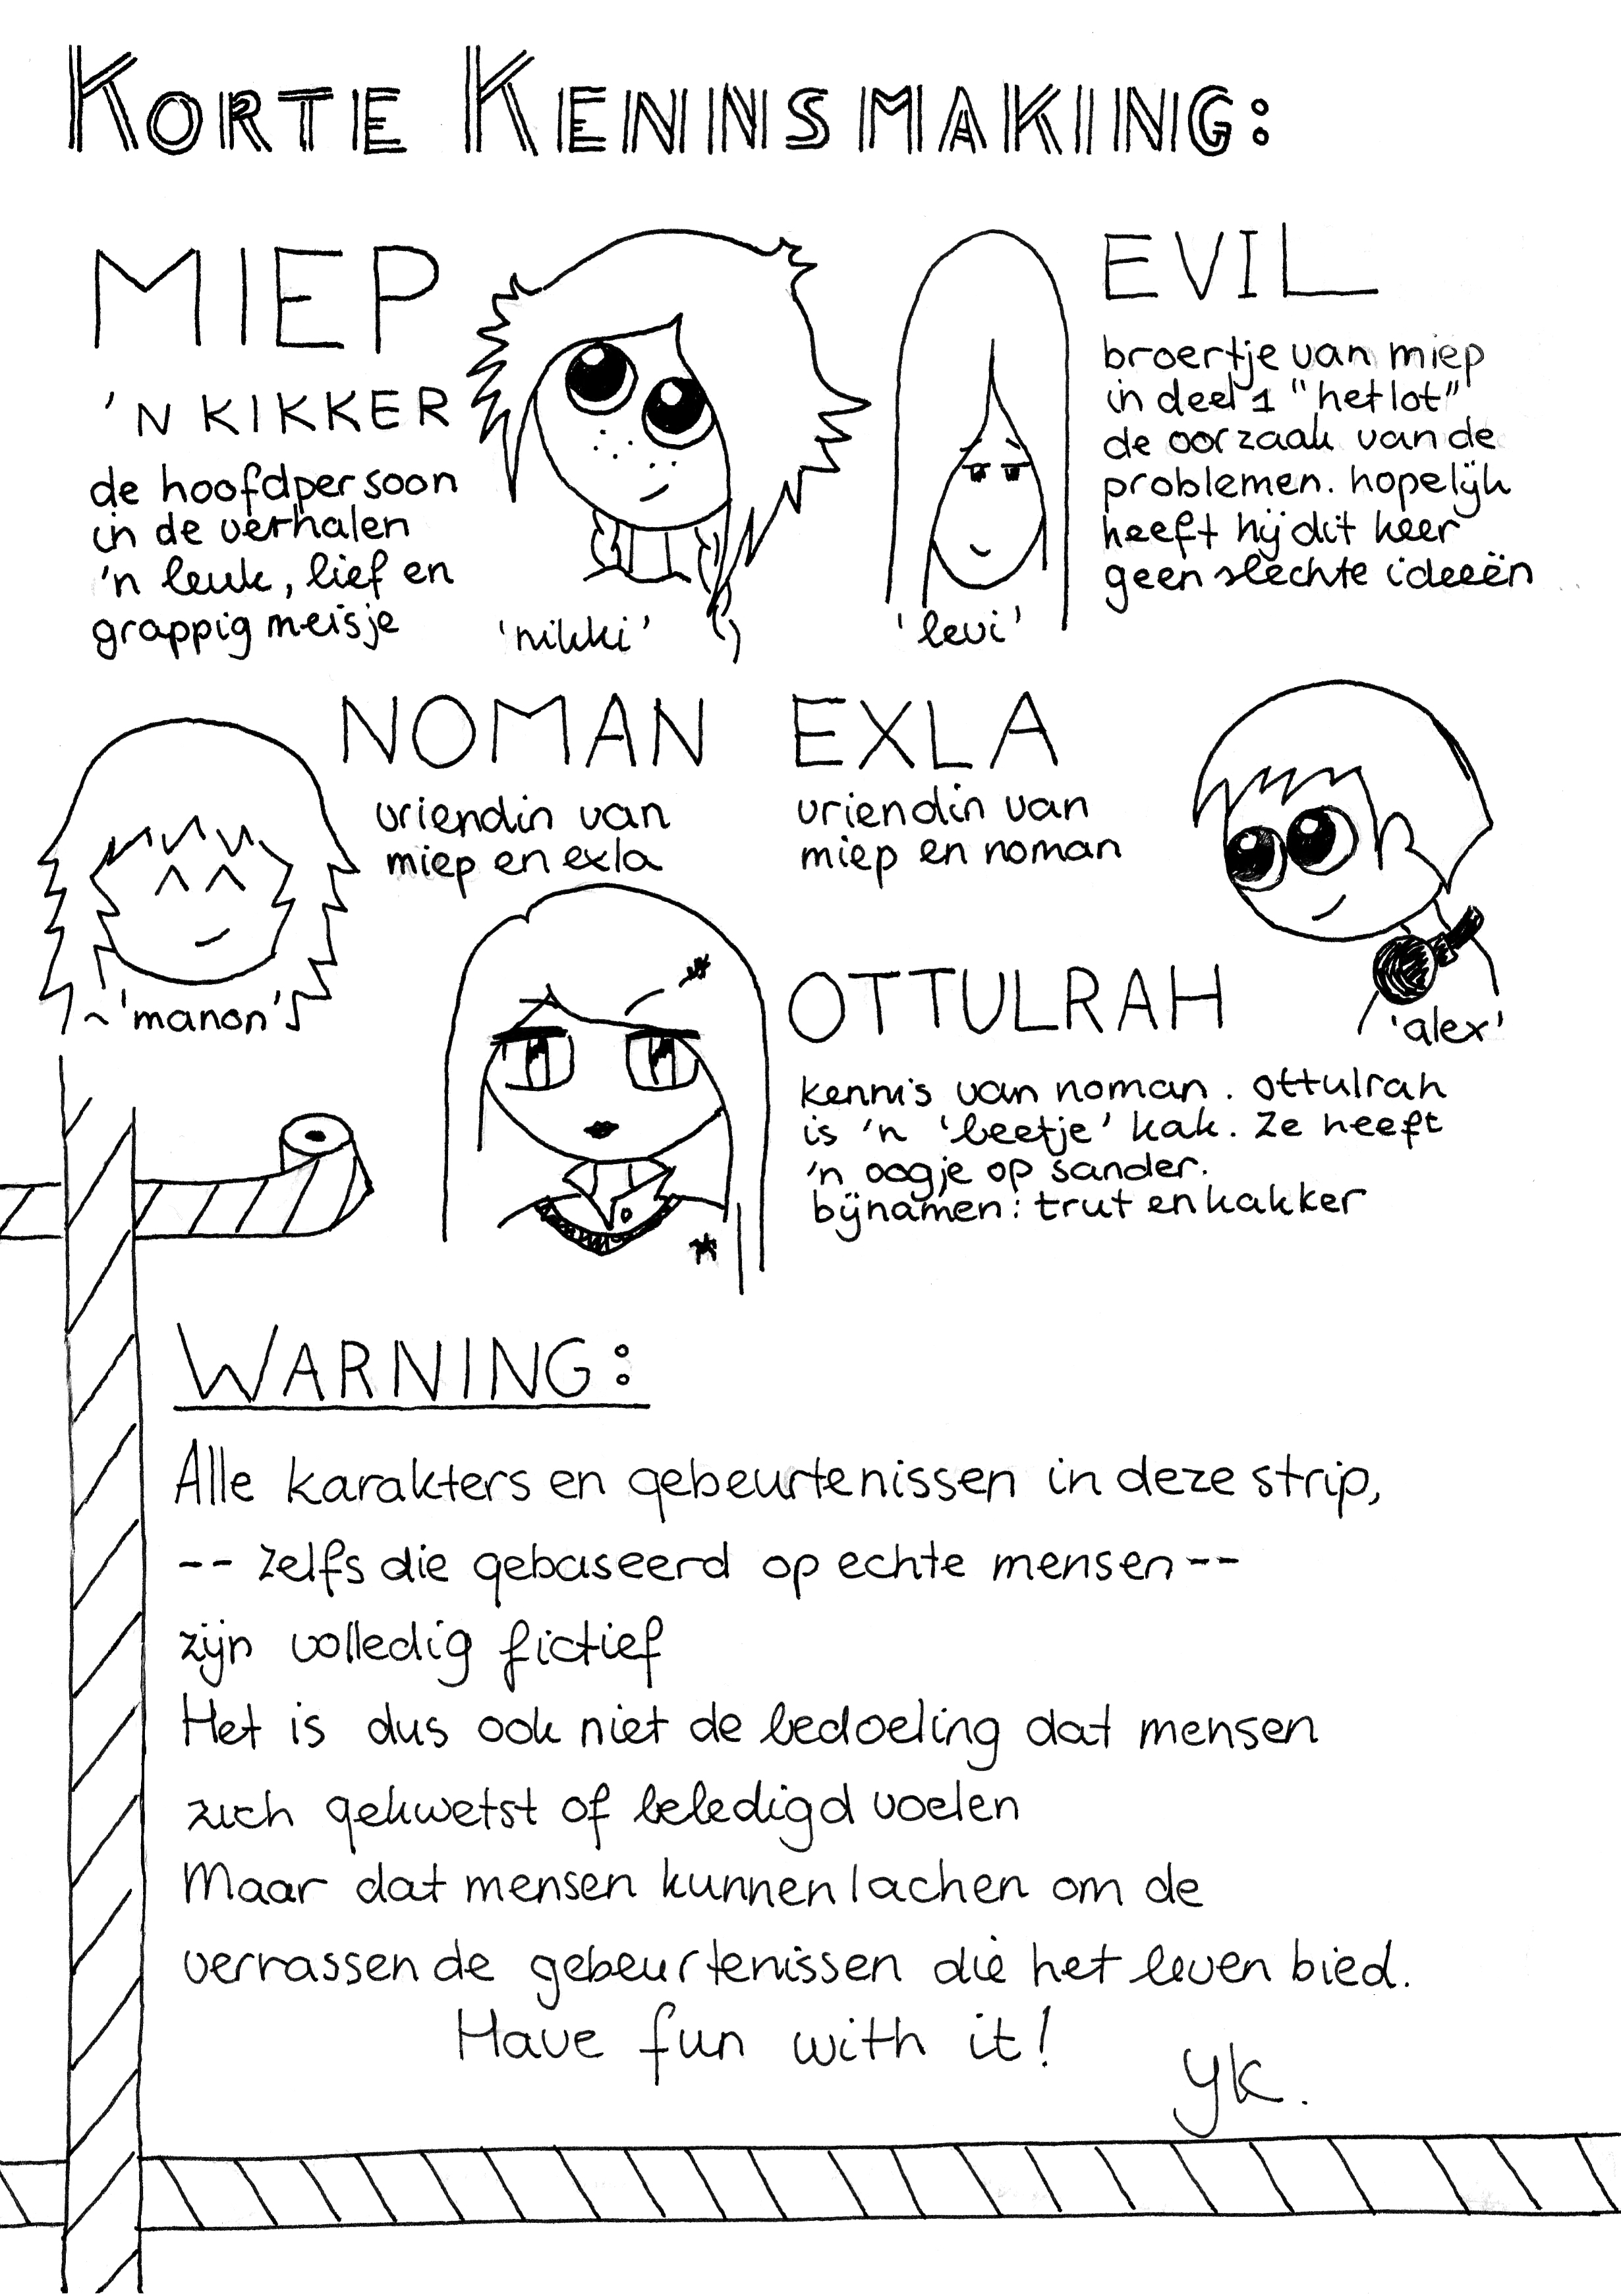 KORTE KENNSMAKING:
MIEP
'N KIKKER
de hoofdpersoon
in de verhalen
'n leuk, lief en
grappig meisje
'nikki'
EVIL
broertje van miep
in deel 1 "het lot"
de oorzaak van de
problemen. hopelijk
heeft hij dit keer
geen slechte ideeën
'levi'
NOMAN
vriendin van
miep en exla
~'manon'
EXLA
vriendin van
miep en noman
'alex'
OTTULRAH
kennis van noman. ottulrah
is 'n 'beetje' kak. Ze heeft
'n oogje op sander.
bijnamen: trut en kakker
WARNING:
Alle karakters en gebeurtenissen in deze strip,
-- zelfs die gebaseerd op echte mensen --
zijn volledig fictief
Het is dus ook niet de bedoeling dat mensen
zich gekwetst of beledigd voelen
Maar dat mensen kunnen lachen om de
verrassende gebeurtenissen die het leven bied.
Have fun with it!
YK.